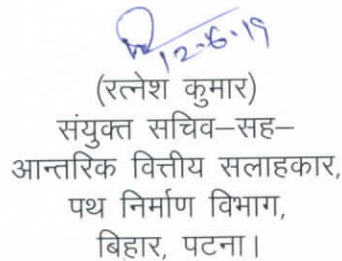 12-6-19
(रत्नेश कुमार)
संयुक्त सचिव–सह–
आन्तरिक वित्तीय सलाहकार,
पथ निर्माण विभाग,
बिहार, पटना।